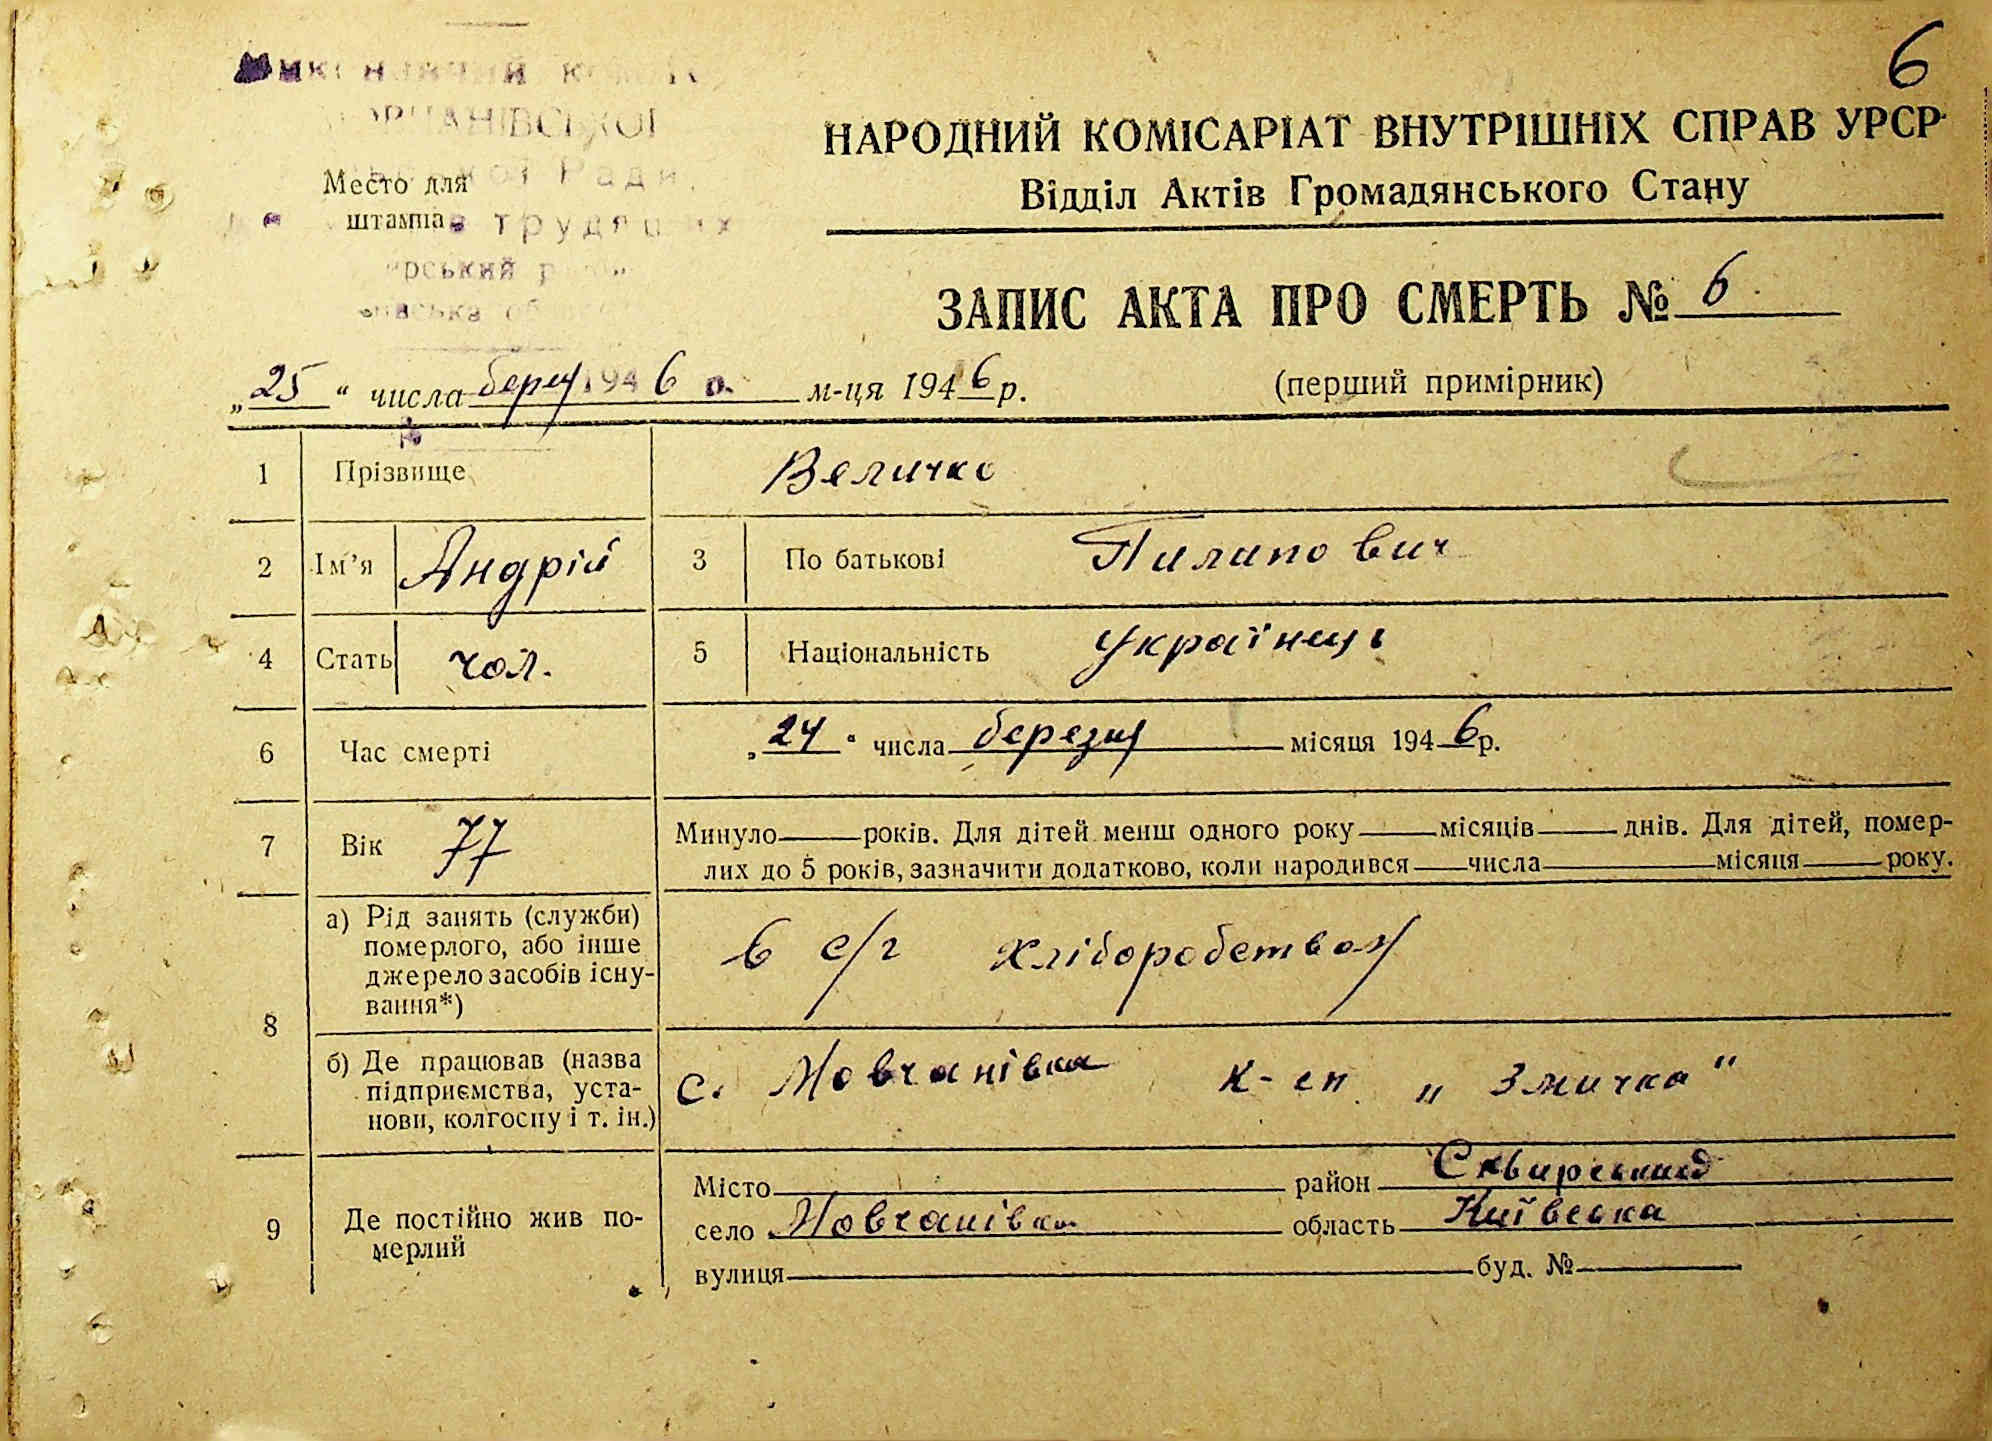 6
НАРОДНИЙ КОМІСАРІАТ ВНУТРІШНІХ СПРАВ УРСР
Відділ Актів Громадянського Стану
Место для
штампа
Ради
трудящих
ЗАПИС АКТА ПРО СМЕРТЬ № 6
„25“ числа берез 1946 р. м-ця 1946 р.
(перший примірник)
1 Прізвище Величко
2 Ім’я Андрій 3 По батькові Пилипович
4 Стать чол. 5 Національність Українець
6 Час смерті „24“ числа березня місяця 1946 р.
7 Вік 77 Минуло років. Для дітей менш одного року місяців днів. Для дітей, помер-
лих до 5 років, зазначити додатково, коли народився числа місяця року.
8 а) Рід занять (служби)
померлого, або інше
джерело засобів існу-
вання*)
в с/г хліборобством
б) Де працював (назва
підприємства, уста-
нови, колгоспу і т. ін.)
с. Мовчанівка к-сп „Змичка"
9 Де постійно жив по-
мерлий
Місто район Сквирський
село Мовчанівка область Київська
вулиця буд. №